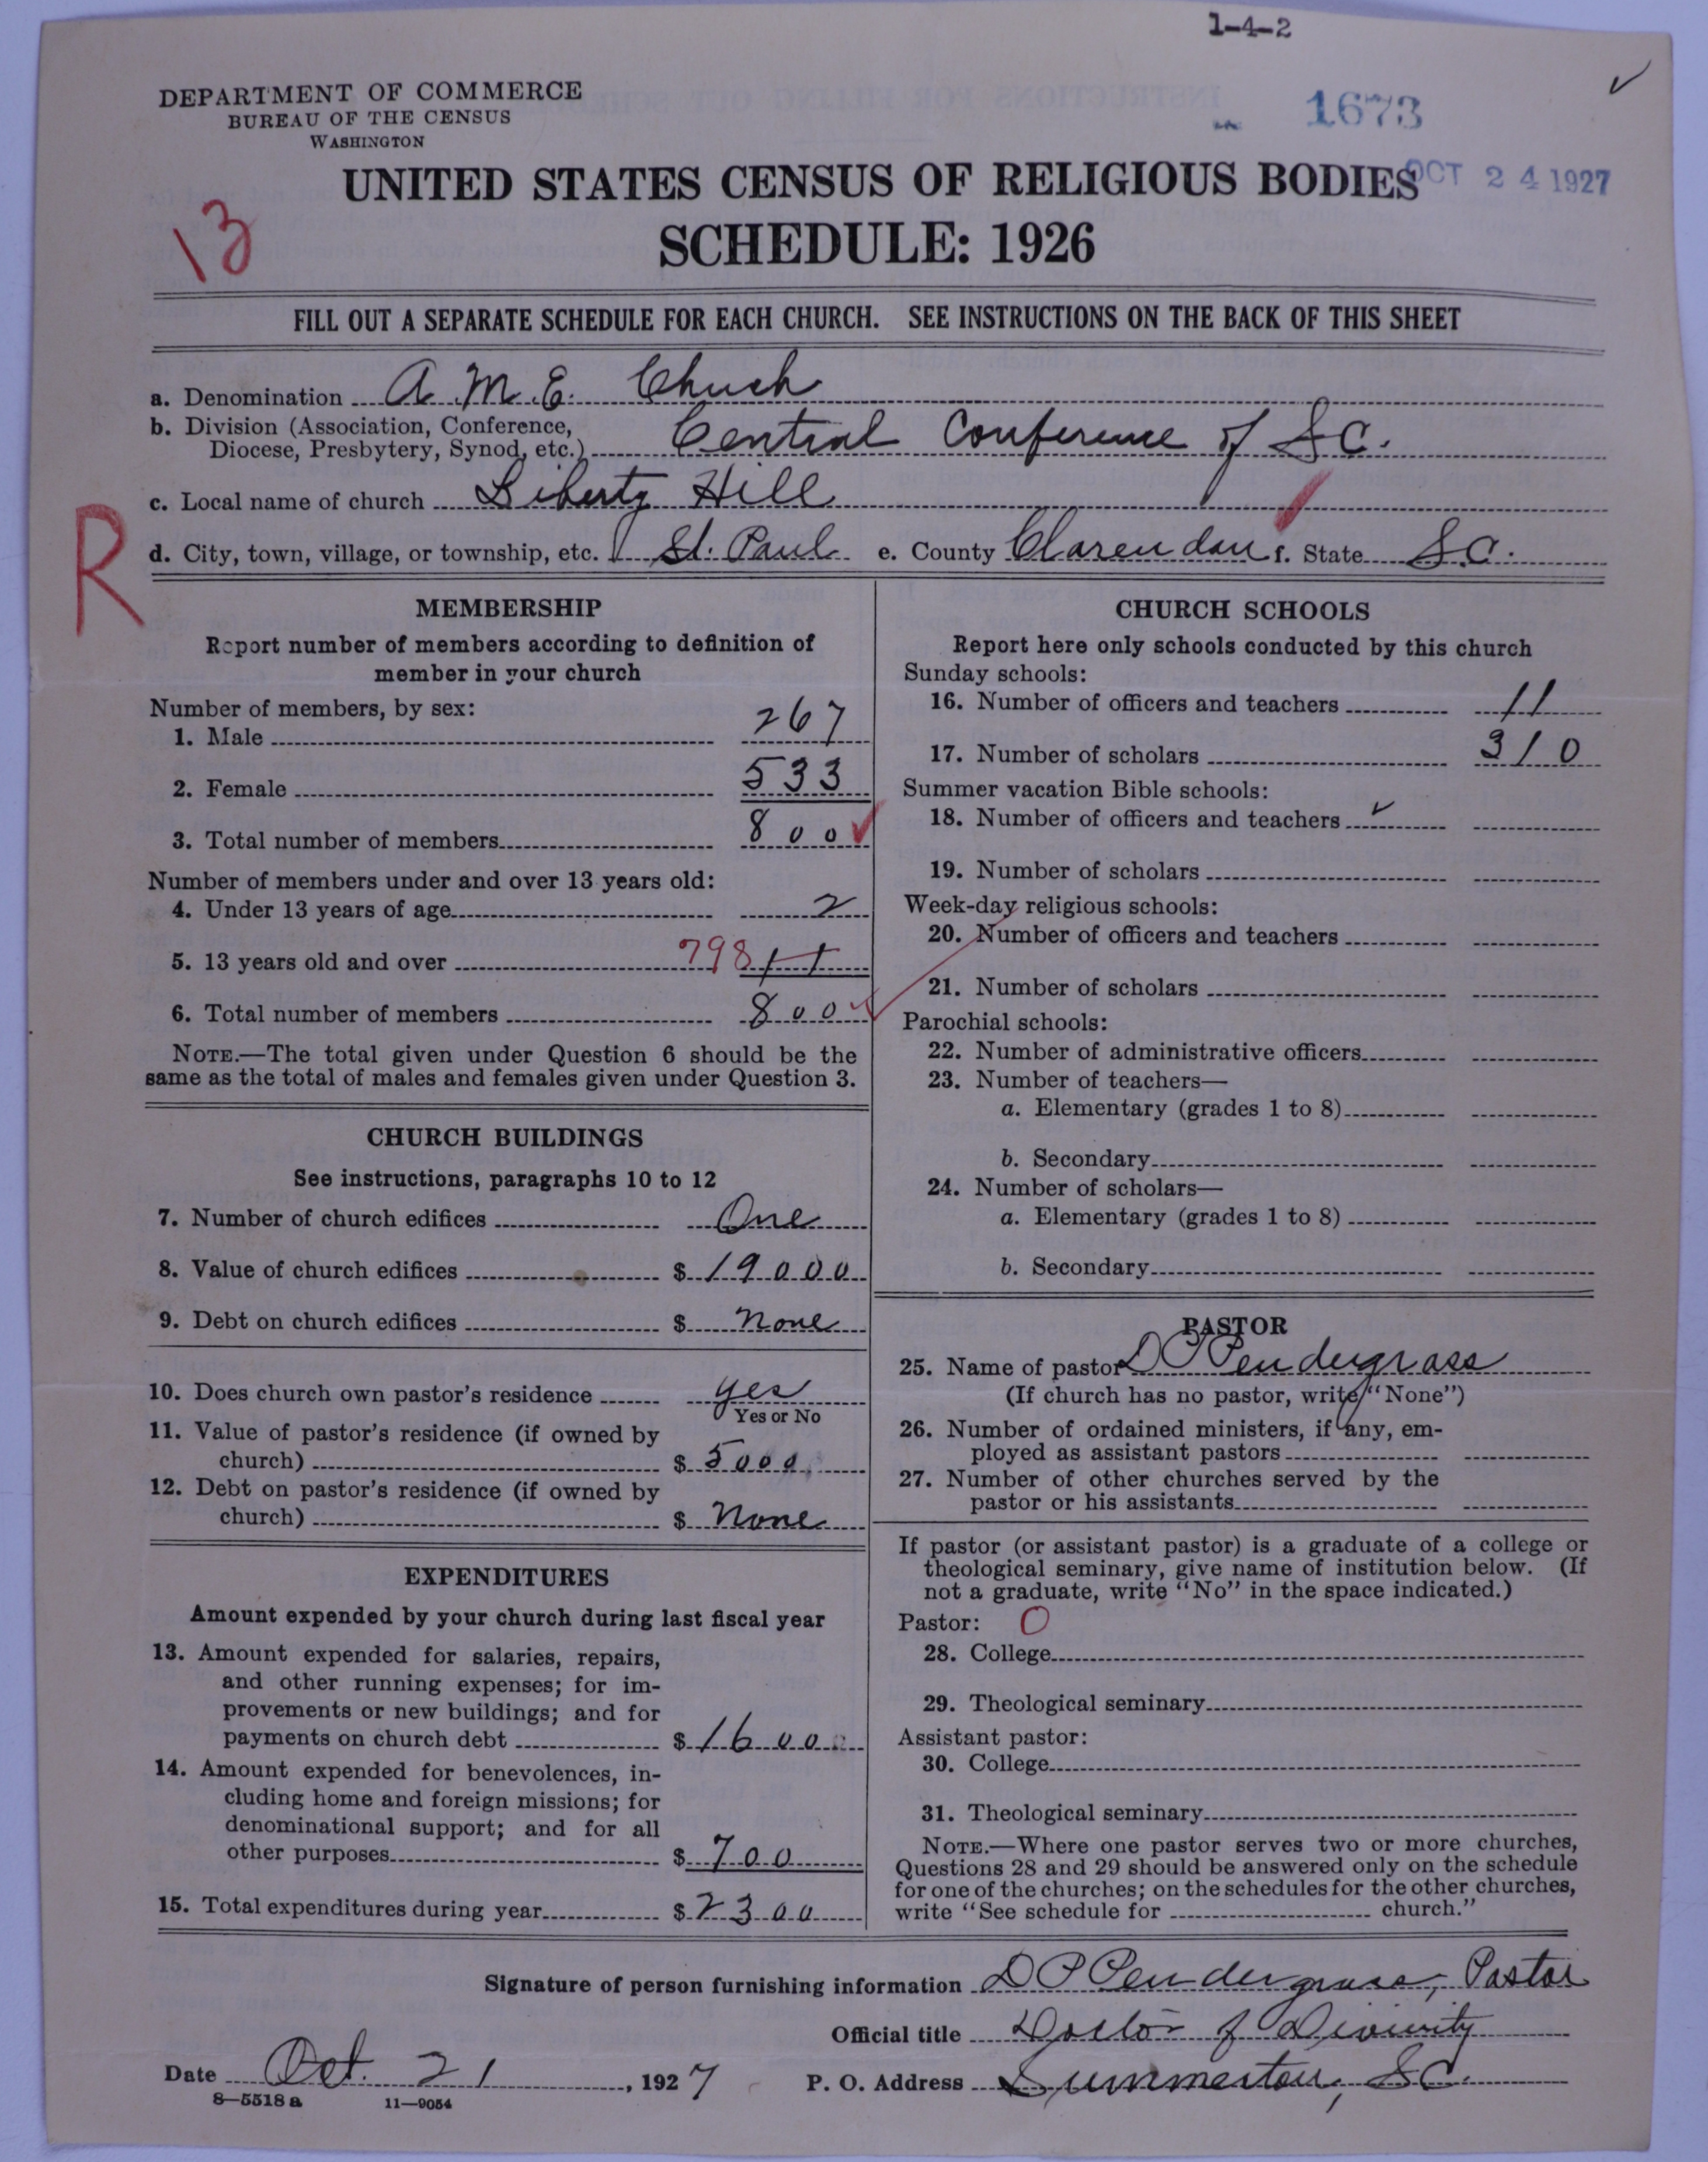 1-4-2
DEPARTMENT OF COMMERCE
BUREAU OF THE CENSUS
WASHINGTON
1673
UNITED STATES CENSUS OF RELIGIOUS BODIES
OCT 24 1927
SCHEDULE: 1926
13
FILL OUT A SEPARATE SCHEDULE FOR EACH CHURCH. SEE INSTRUCTIONS ON THE BACK OF THIS SHEET
a. Denomination A.M.E. Chuch
b. Division (Association, Conference,
Diocese, Presbytery, Synod, etc.) Central Conference of S.C.
c. Local name of church Liberty Hill
R
d. City, town, village, or township, etc. St. Paul e. County Clarendon f. State S.C.
MEMBERSHIP
Report number of members according to definition of
member in your church
Number of members, by sex:
1. Male 267
2. Female 533
3. Total number of members 800
Number of members under and over 13 years old:
4. Under 13 years of age 2
5. 13 years old and over 798
6. Total number of members 800
NOTE.—The total given under Question 6 should be the
same as the total of males and females given under Question 3.
CHURCH BUILDINGS
See instructions, paragraphs 10 to 12
7. Number of church edifices One
8. Value of church edifices $ 19000
9. Debt on church edifices $ None
10. Does church own pastor's residence yes
Yes or No
11. Value of pastor's residence (if owned by
church) $ 5000
12. Debt on pastor's residence (if owned by
church) $ None
EXPENDITURES
Amount expended by your church during last fiscal year
13. Amount expended for salaries, repairs,
and other running expenses; for im-
provements or new buildings; and for
payments on church debt $ 1600
14. Amount expended for benevolences, in-
cluding home and foreign missions; for
denominational support; and for all
other purposes $ 700
15. Total expenditures during year $ 2300
CHURCH SCHOOLS
Report here only schools conducted by this church
Sunday schools:
16. Number of officers and teachers 11
17. Number of scholars 310
Summer vacation Bible schools:
18. Number of officers and teachers
19. Number of scholars
Week-day religious schools:
20. Number of officers and teachers
21. Number of scholars
Parochial schools:
22. Number of administrative officers
23. Number of teachers—
a. Elementary (grades 1 to 8)
b. Secondary
24. Number of scholars—
a. Elementary (grades 1 to 8)
b. Secondary
PASTOR
25. Name of pastor D P Pendergrass
(If church has no pastor, write "None")
26. Number of ordained ministers, if any, em-
ployed as assistant pastors
27. Number of other churches served by the
pastor or his assistants
If pastor (or assistant pastor) is a graduate of a college or
theological seminary, give name of institution below. (If
not a graduate, write "No" in the space indicated.)
Pastor: O
28. College
29. Theological seminary
Assistant pastor:
30. College
31. Theological seminary
NOTE.—Where one pastor serves two or more churches,
Questions 28 and 29 should be answered only on the schedule
for one of the churches; on the schedules for the other churches,
write "See schedule for church."
Signature of person furnishing information D P Pendergrass, Pastor
Official title Doctor of Divinity
Date Oct. 21, 1927 P. O. Address Summerton, S.C.
8—5518 a 11—9054